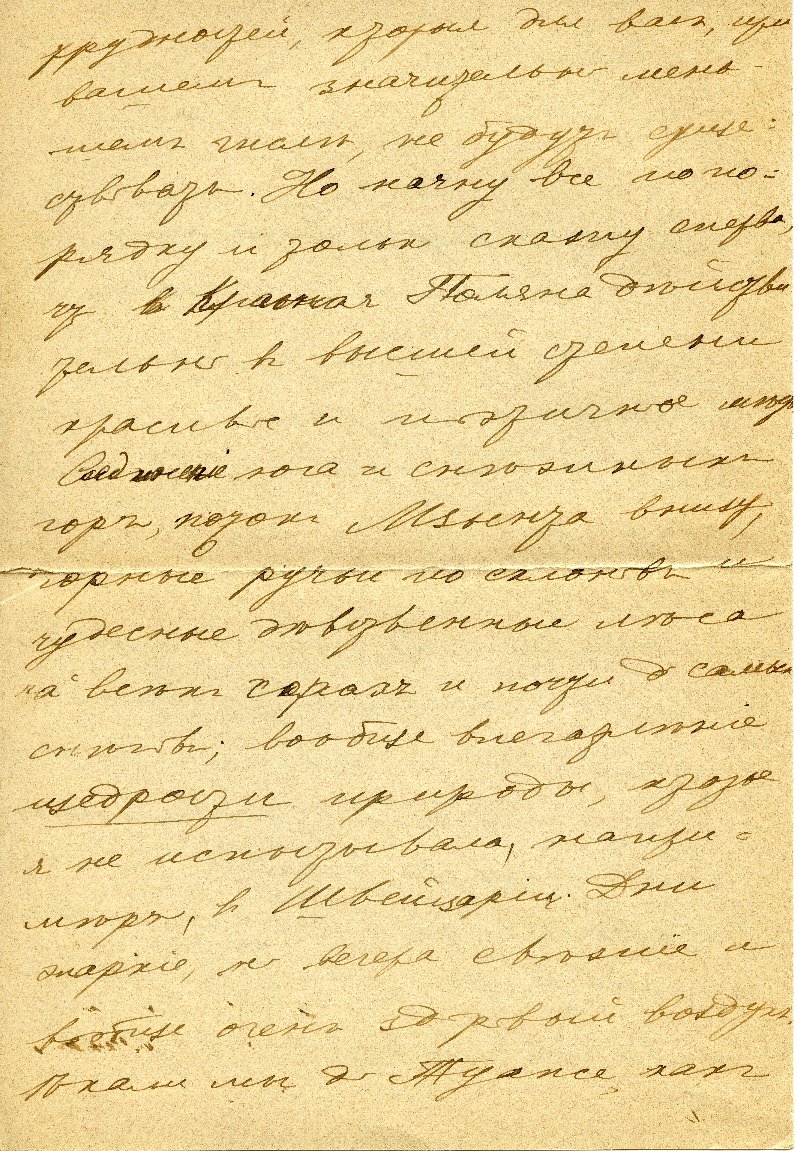 трудностей, которыя для васъ, при
вашемъ значительно мень-
шемъ числѣ, не будутъ суще-
ствовать. Но начну все по по-
рядку и только скажу сперва,
что Красная Поляна дѣйстви
тельно въ высшей степени
красивое и поэтичное мѣсто
Соединеніе юга и снѣжныхъ
горъ, потокъ Мзымта внизу,
горные ручьи по склонамъ и
чудесные дѣвственные лѣса
на всѣхъ горахъ и почти до самыхъ
снѣговъ; вообще впечатлѣніе
щедрости природы, которое
я не испытывала, напри-
мѣръ, въ Швейцаріи. Дни
жаркіе, но вечера свѣжіе и
вообще очень здоровый воздухъ.
Ѣхали мы до Туапсе, какъ